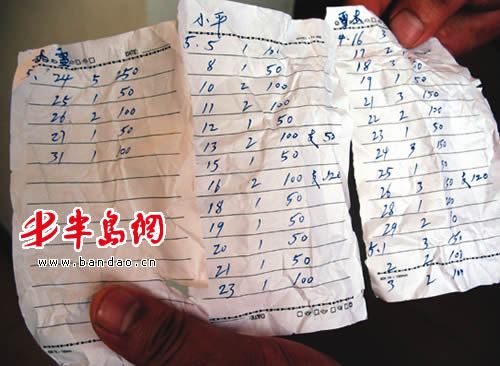 DATE:
24 5 150
25 1 50
26 2 100
27 1 50
31 1 100
小平
5.5 1
8 1 50
10 2 100
11 2 100
12 1 50
13 2 100 支50
15 1 50
16 2 100 支120
18 1 50
19 1 50
20 1 50
21 1 50
23 1 100
DATE:
4.16 3
17 2
18 3
19 1 50
21 3 150
22 2 100
23 1 50
24 3 150
25 1 50
26 3 150
28 1
29 2
5.1 3 150
2 2 100
3 2 100
半岛網
www.bandao.cn